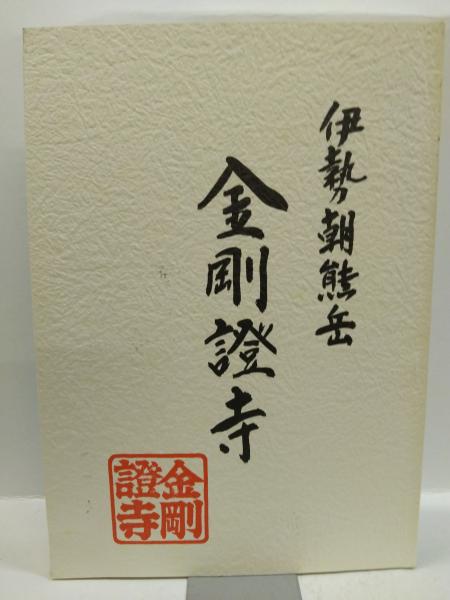 伊勢朝熊岳
金剛證寺
金剛
證寺